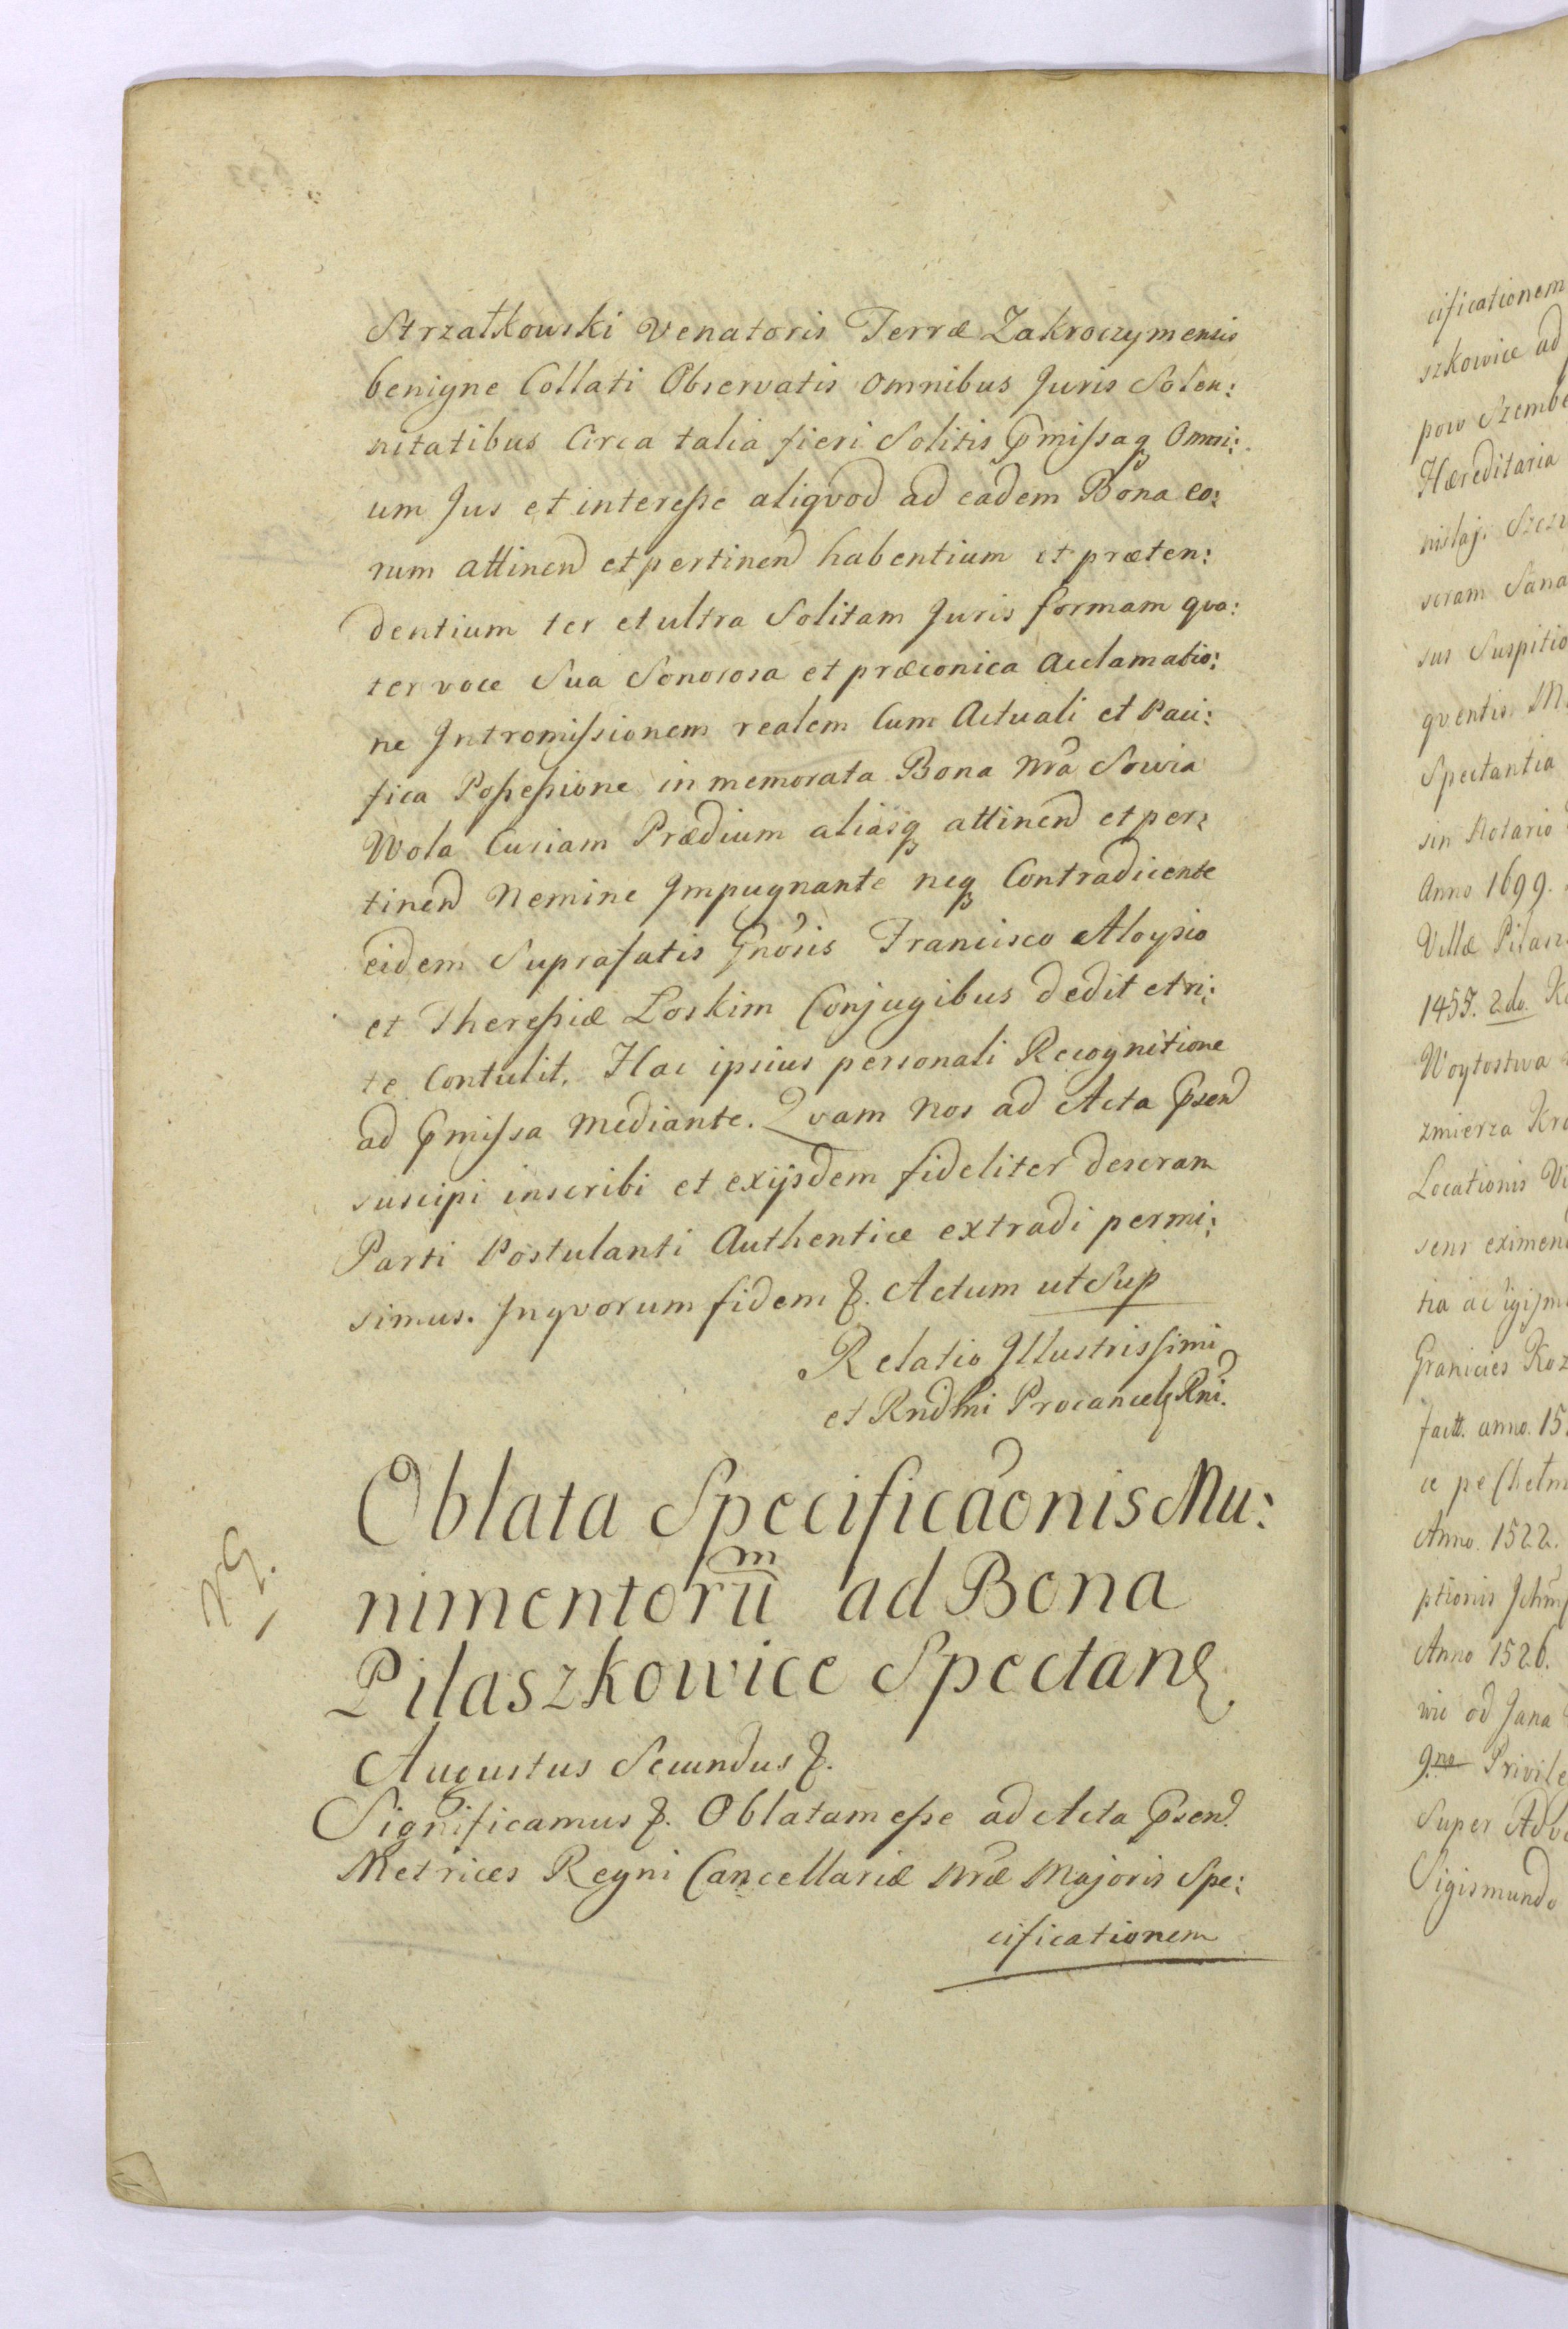 Strzałkowski Venatoris Terræ Zakroczymensis
benigne Collati Observatis omnibus Juris Solen:
nitatibus Circa talia fieri Solitis Pmissaq Omni:
um Jus et interesse aliqvod ad eadem Bona eo:
rum attinend et pertinend habentium et præten:
dentium ter et ultra Solitam Juris formam qva:
ter voce Sua Sonorosa et præconica acclamatio:
ne Intromissionem realem Cum Actuali et Paci:
fica Possessione in memorata Bona nrã Sowia
Wola Curiam Prædium aliasq attinend et per:
tinend Nemine Impugnante neq Contradicente
eidem Suprafatis Gnõsis Francisco Aloysio
et Theressiæ Loskim Conjugibus dedit et ri:
te Contulit. Hac ipsius personali Recognitione
ad Pmissa mediante. Qvam nos ad Acta Psend
suscipi inscribi et exijsdem fideliter descram
Parti Postulanti Authentice extradi permi:
simus. Inqvorum fidem &. Actum ut Sup
Relatio Illustrissimi
et Rndmi Procancely Rni.
Oblata Specificaõnis Mu:
nimentorũm ad Bona
Pilaszkowice Spectan
Augustus Secundus &.
Significamus &. Oblatam esse ad Acta Psend
Metrices Regni Cancellariæ nræ Majoris Spe:
cificationem
cificationem
szkowice ad
pow Szembe
Hæreditaria
seram Sana
sus Suspitio
qventis M
Spectantia
sin Notario
Anno 1699.
Villæ Pilas
1455. 2do. K
Woytostwa
zmierza Kr
Locationis Vi
sens eximend
Granicies Koz
fact. anno. 15
Anno. 1522.
Anno 1526.
wic od Jana
9.no Privile
Super Adv
Sigismundo